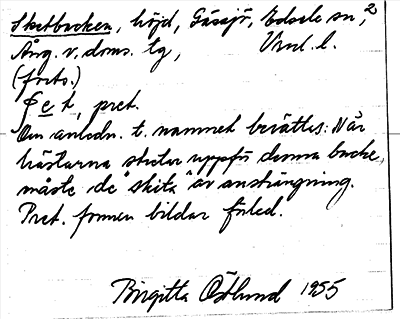 Sketbacken, höjd, Gåssjö, Edsele sn, 2
Ång. v. doms. tg, Vrml. l.
(forts.)
s e t, pret.
Om anledn. t. namnet berättas: När
hästarna sketar uppför denna backe,
måste de "skita" av ansträngning.
Pret. formen bildar förled.
Birgitta Östlund 1955